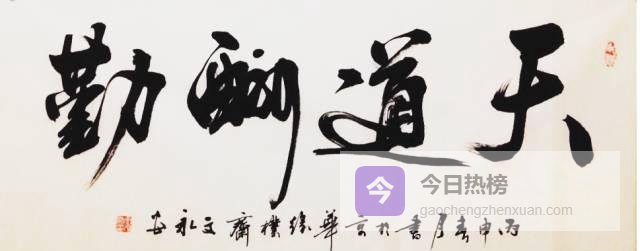 天道酬勤
丙申春月書於京華樸齋文永
今
今日热榜
gaochengzhenxuan.com